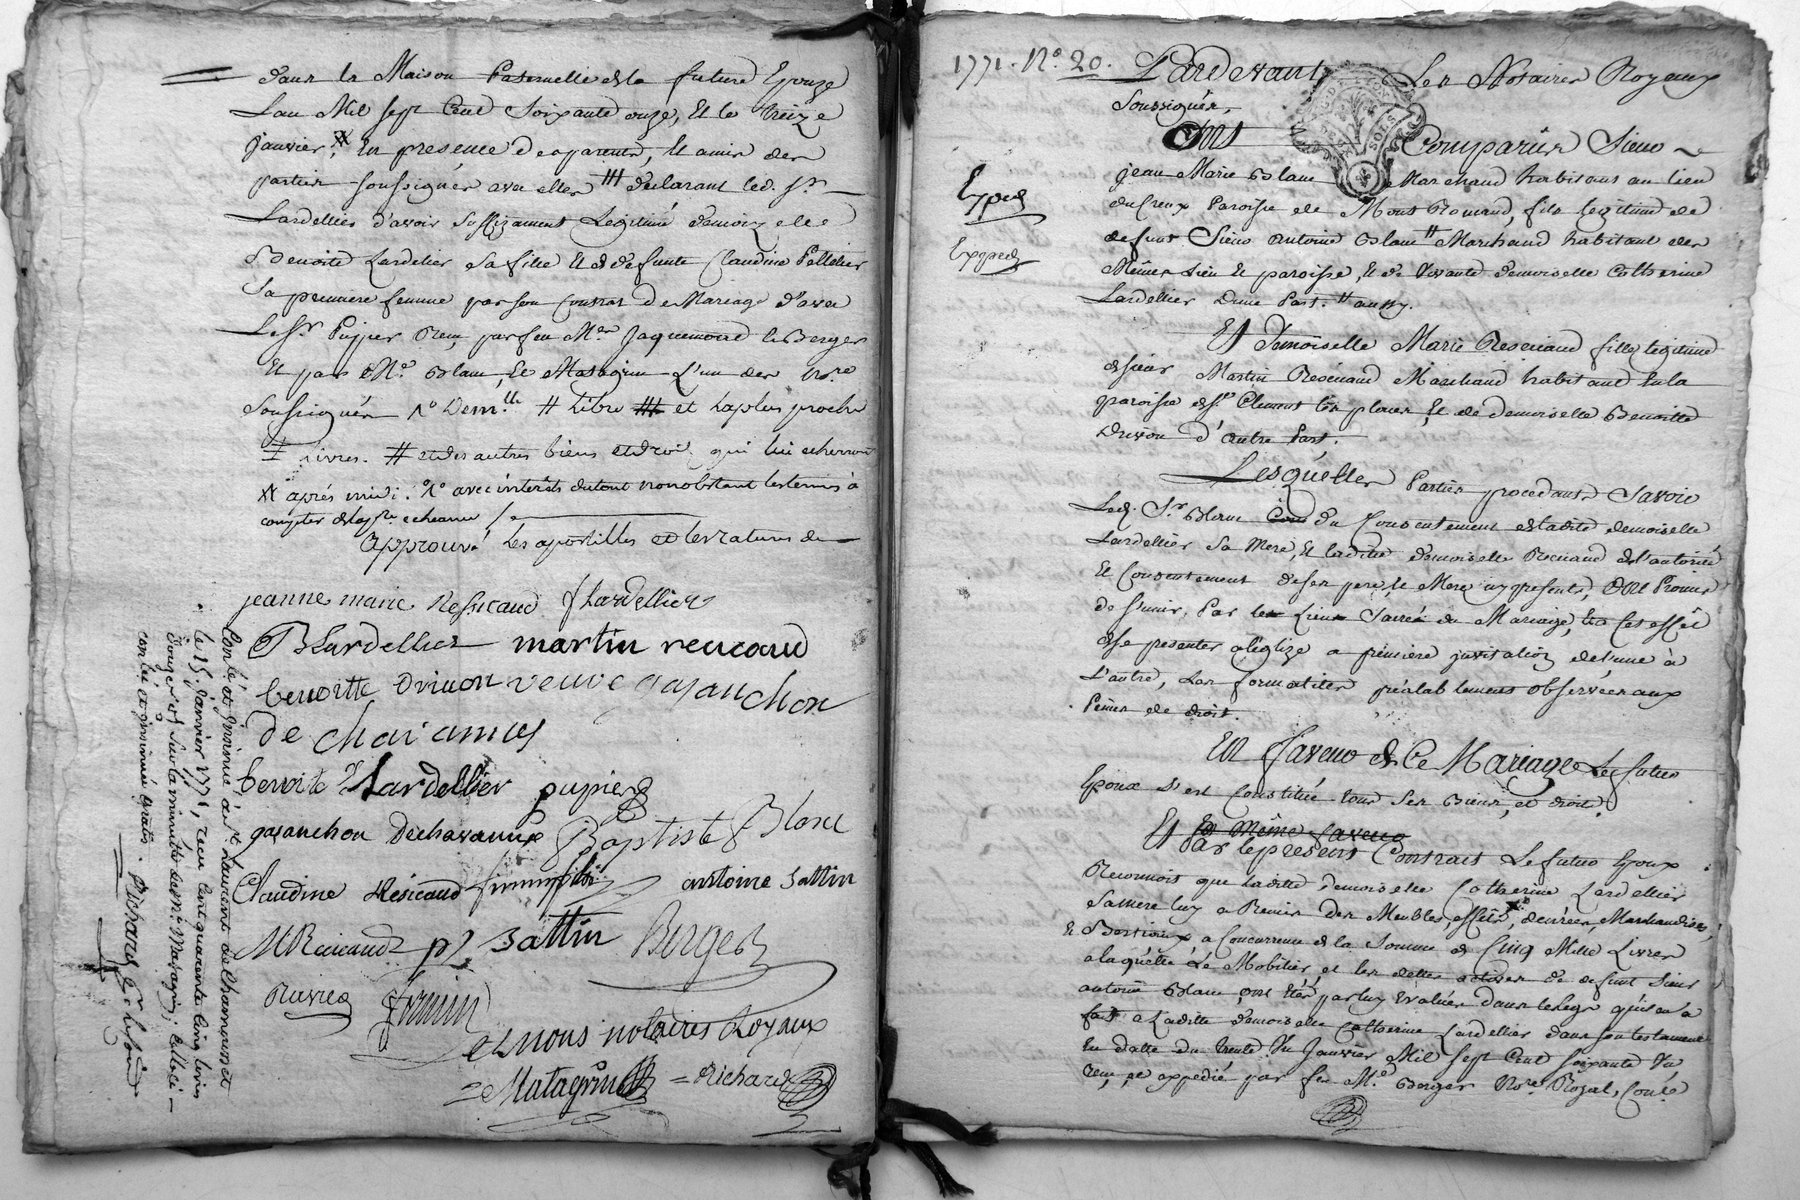 dans la Maison Paternelle de la future Epouze
Lan Mil sept Cent Soixante onze, Et le treize
janvier, En presence de parents, Et amis des
parties soussignés avec elles declarant led. sr.
Lardellier d'avoir suffizament Legitimé demoizelle
Benoite Lardelier sa fille Et de defunte Claudine Pelletier
Sa premiere femme par son Contrat de Mariage d'avec
Le Sr. Pupier Recu par feu Me. Jaquemond le Berger
Et par Me. Blanc, Et Matagrin L'un des nore
Soussignés 1º Demlle # Libre et la plus proche
± rives. # et des autres biens et droits qui lui echerront
après midi. 1º avec intérêts du tout nonobstant les termes à
compter de la pre. echeance
Approuvé les apostilles et les ratures
jeanne marie Resicaud J Lardellier
B Lardellier martin reucaud
benoitte Drivon veuve gajanchon
de charannes
benoite Lardellier pupier
gasanchon Decharanne Baptiste Blanc
Claudine Resicaud antoine Battin
M Reucaud Battin Berger
Ravier
et nous notaires Royaux
= Matagrin = Richard
Conlé et Insinué à St. Laurent de Chamousset
le 15 janvier 1771, recu Cent quarante cinq livres
douze s. sur la minutte de Me. Matagrin; Celle ci
conlée et insinuée gratis. Richard
1771. Nº. 20. Pardevant Les Notaires Royaux
Soussignés,
GD. LYON DEUX SOLS
Comparûs Sieur
jean Marie Blanc Marchand habitant au lieu
Exped
du Creux Paroisse de Mont Romand, fils legitime de
defunt Sieur Antoine Blanc # Marchand habitant des
Expped
Mêmes Lieu Et paroisse, Et de Vivante demoiselle Catherine
Lardellier Dune Part. # aussy.
Et Demoiselle Marie Resicaud fille legitime
de sieur Martin Resicaud Marchand habitant en la
paroisse de St. Clement les places, Et de demoiselle Benoitte
Drivon d'autre Part.
Lesquelles Parties procedant Savoir
Led. Sr. Blanc du Consentement de ladite demoiselle
Lardellier Sa Mere, Et ladite demoiselle Resicaud de l'autorité
Et Consentement de ses pere, Et Mere icy presents, Ont Promis
de s'unir, Par le Lien Sacré du Mariage, Et à Cet effet
de se presenter a l'eglize a premiere invitation de l'une à
L'autre, Les formalités préalablement observées aux
Peines de droit.
En Faveur de Ce Mariage Le futur
Epoux s'est Constitué tous Ses Biens, et droits,
Et
Par le present Contrat Le futur Epoux
Reconnois que ladite Demoiselle Catherine Lardellier
Sa mere luy a Remis des Meubles, effets, denrées, Marchandises,
Et Bestiaux, a Concurrence de la Somme de Cinq Mille Livres
a laquelle Le Mobilier, et les dettes actives de defunt Sieur
antoine Blanc ont étés par luy evalués dans le Legs qu'il en a
fait a ladite demoiselle Catherine Lardellier dans son testament
En datte du trente Un Janvier Mil sept Cent soixante Un
recu, et expedié par feu Me. Berger Nore. Royal, Conlé